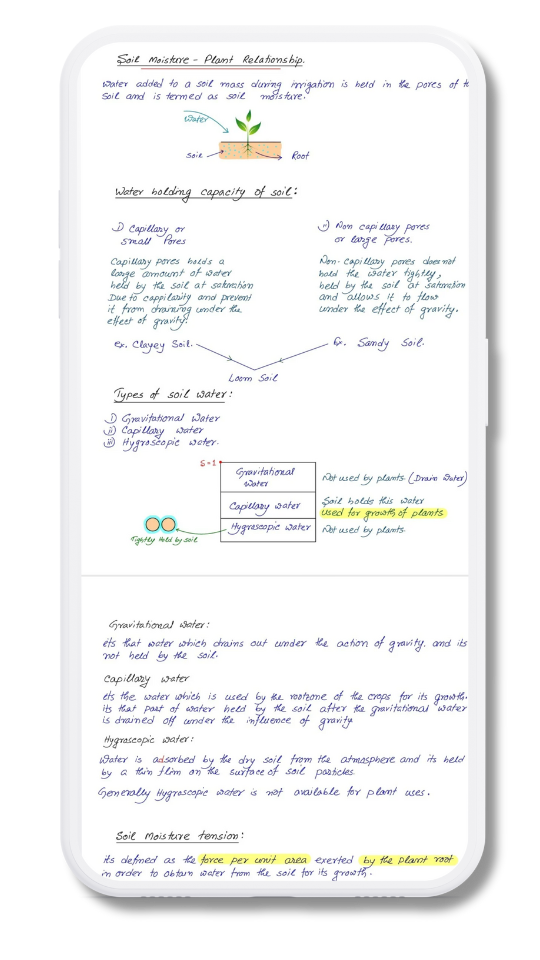 Soil Moisture - Plant Relationship.
Water added to a soil mass during irrigation is held in the pores of t
soil and is termed as soil moisture.
Water
soil
Root
Water holding capacity of soil:
i) Capillary or
small Pores
Capillary pores holds a
large amount of water
held by the soil at saturation
Due to cappilarity and prevent
it from draining under the
effect of gravity.
ex. Clayey Soil.
ii) Non capillary pores
or large pores.
Non-capillary pores does not
hold the water tightly,
held by the soil at saturation
and allows it to flow
under the effect of gravity.
Ex. Sandy Soil.
Loom Soil
Types of soil water:
i) Gravitational Water
ii) Capillary water
iii) Hygroscopic water.
S=1
Gravitational
Water
Not used by plants (Drain Water)
Capillary water
Soil holds this water
used for growth of plants
Hygroscopic water
Not used by plants
Tightly Held by soil
Gravitational water:
its that water which drains out under the action of gravity. and its
not held by the soil.
Capillary water
its the water which is used by the rootzone of the crops for its growth.
its that part of water held by the soil after the gravitational water
is drained off under the influence of gravity
Hygroscopic water:
Water is adsorbed by the dry soil from the atmosphere and its held
by a thin flim on the surface of soil particles.
Generally Hygroscopic water is not available for plant uses.
Soil Moisture tension:
its defined as the force per unit area exerted by the plant root
in order to obtain water from the soil for its growth.